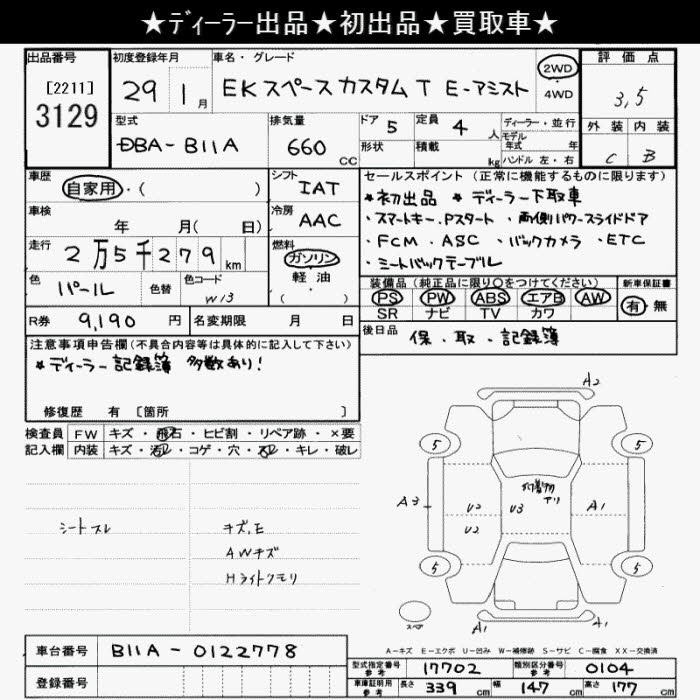 ★ディーラー出品★初出品★買取車★
出品番号 初度登録年月 車名・グレード 評価点
[2211] 29 1月 EKスペースカスタムT E-アミスト 2WD ・ 4WD 3,5
3129
型式 排気量 ドア 5 定員 4人 ディーラー・並行 外装 内装
DBA-B11A 660 CC 形状 積載 kg モデル年式 年 ハンドル 左・右 C B
車歴 自家用・( ) シフト IAT セールスポイント (正常に機能するものに限ります)
*初出品 *ディーラー下取車
車検 年 月( 日) 冷房 AAC ・スマートキー.Pスタート ・両側パワースライドドア
走行 2万5千279km 燃料 ガソリン ・FCM.ASC ・バックカメラ ・ETC
軽油 ・シートバックテーブル
( )
色 パール 色替 色コード W13 装備品 (純正品に限り○をつけてください) 新車保証書
PS PW ABS エアB AW 有・無
SR ナビ TV カワ
R券 9,190円 名変期限 月 日 後日品 保.取.記録簿
注意事項申告欄(不具合内容等は具体的に記入して下さい)
*ディーラー記録簿 多数あり!
修復歴 有 [箇所 ]
検査員 FW キズ・飛石・ヒビ割・リペア跡・×要
記入欄 内装 キズ・汚れ・コゲ・穴・スレ・キレ・破レ
シートスレ キズ,E
AWキズ
Hライトクモリ
A2
5 5
A3 U2 U3 A1
U2
5 5
スペア A1 A1
A-キズ E-エクボ U-凹み W-補修跡 S-サビ C-腐食 XX-交換済
車台番号 B11A-0122778 型式指定番号 参考 17702 類別区分番号 参考 0104
登録番号 車庫証明用 参考 長さ 339cm 幅 147cm 高さ 177cm